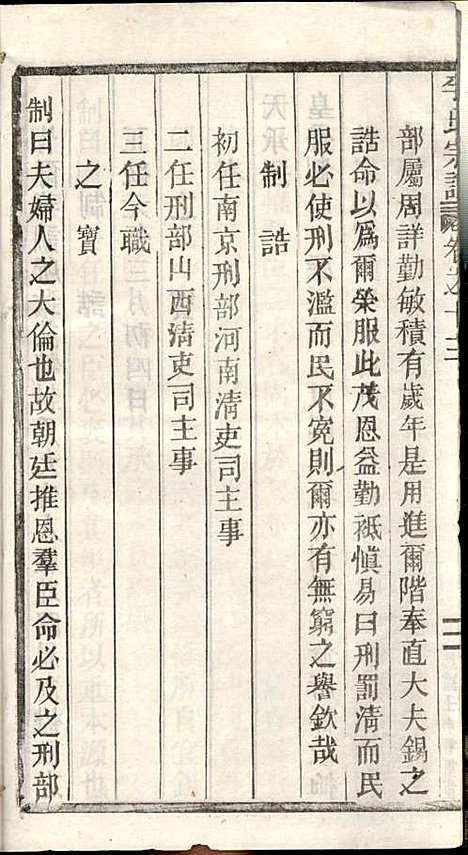 李氏宗譜 卷之十三
部屬周詳勤敏積有歲年是用進爾階奉直大夫錫之
誥命以爲爾榮服此茂恩益勤祗慎易曰刑罰淸而民
服必使刑不濫而民不寃則爾亦有無窮之譽欽哉
制誥
初任南京刑部河南淸吏司主事
二任刑部山西淸吏司主事
三任今職
之寳
制曰夫婦人之大倫也故朝廷推恩羣臣命必及之刑部